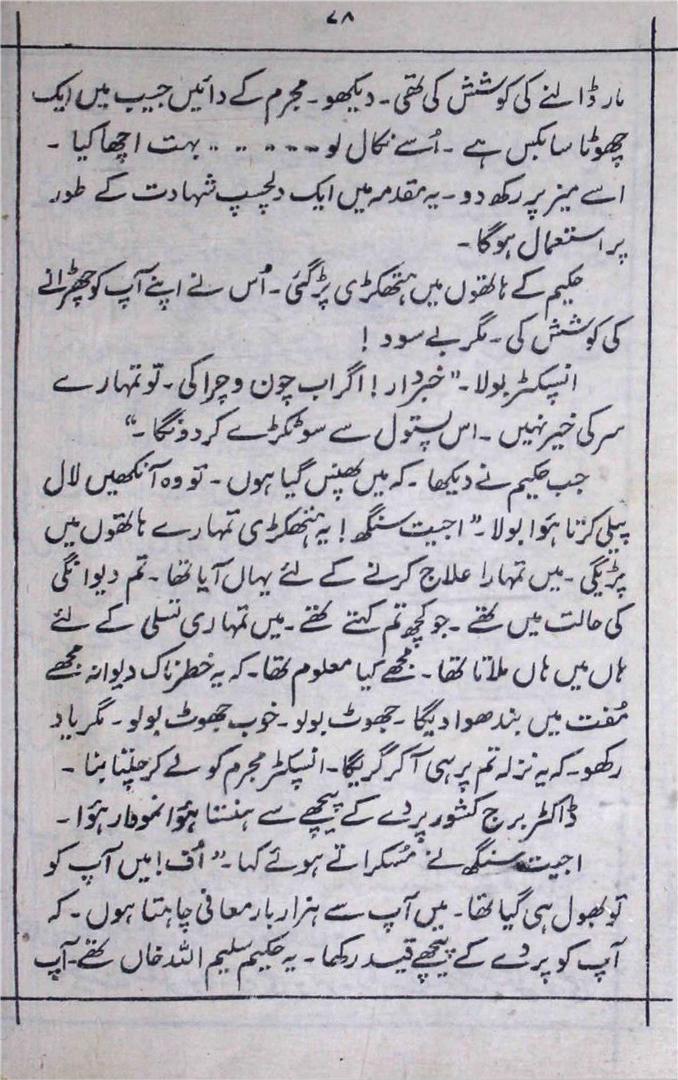 ۷۸
مار ڈالنے کی کوشش کی تھی۔ دیکھو۔ مجرم کے دائیں جیب میں ایک
چھوٹا سا بکس ہے ۔ اُسے نکال لو ۔۔۔ ۔۔ ۔۔ ۔۔ بہت اچھا کیا ۔
اسے میز پر رکھ دو ۔ یہ مقدمہ میں ایک دلچسپ شہادت کے طور
پر استعمال ہوگا ۔
حکیم کے ہاتھوں میں ہتھکڑی پڑ گئی ۔ اُس نے اپنے آپ کو چھڑانے
کی کوشش کی ۔ مگر بے سود !
انسپکٹر بولا ۔ ”خبردار ! اگر اب چون و چرا کی ۔ تو تمہارے
سر کی خیر نہیں ۔ اس پستول سے سو ٹکڑے کر دونگا ۔“
جب حکیم نے دیکھا ۔ کہ میں پھنس گیا ہوں ۔ تو وہ آنکھیں لال
پیلی کرتا ہؤا بولا ۔ ”اجیت سنگھ ! یہ ہتھکڑی تمہارے ہاتھوں میں
پڑیگی ۔ میں تمہارا علاج کرنے کے لئے یہاں آیا تھا ۔ تم دیوانگی
کی حالت میں تھے ۔ جو کچھ تم کہتے تھے ۔ میں تمہاری تسلی کے لئے
ہاں میں ہاں ملاتا تھا ۔ مجھے کیا معلوم تھا ۔ کہ یہ خطرناک دیوانہ مجھے
مُفت میں بندھوا دیگا ۔ جھوٹ بولو ۔ خوب جھوٹ بولو ۔ مگر یاد
رکھو ۔ کہ یہ نزلہ تم پر ہی آکر گریگا ۔ انسپکٹر مجرم کو لے کر چلتا بنا ۔
ڈاکٹر برج کشور پردے کے پیچھے سے ہنستا ہؤا نمودار ہؤا ۔
اجیت سنگھ نے مُسکراتے ہوئے کہا ۔ ”اُف ! میں آپ کو
تو بھول ہی گیا تھا ۔ میں آپ سے ہزار بار معافی چاہتا ہوں ۔ کہ
آپ کو پردے کے پیچھے قید رکھا ۔ یہ حکیم سلیم اللہ خاں تھے ۔ آپ